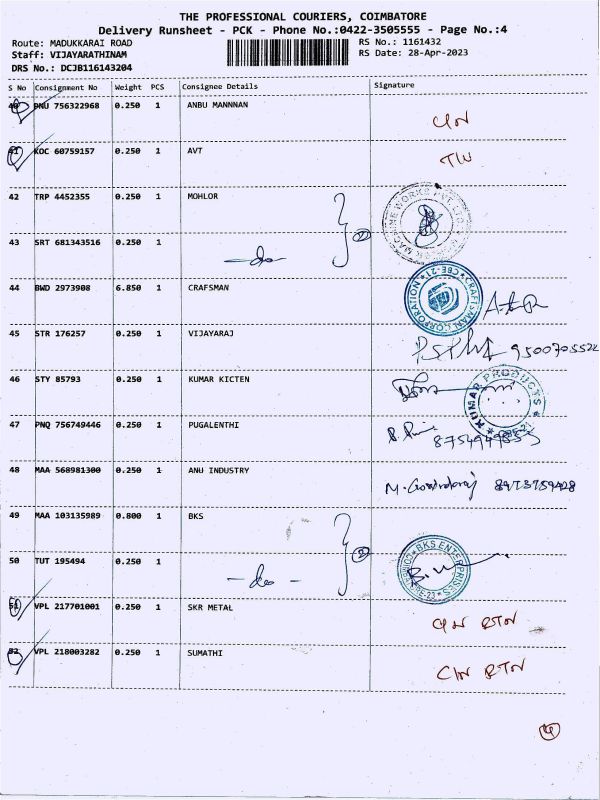 THE PROFESSIONAL COURIERS, COIMBATORE
Delivery Runsheet - PCK - Phone No.:0422-3505555 - Page No.:4
Route: MADUKKARAI ROAD RS No.: 1161432
Staff: VIJAYARATHINAM RS Date: 28-Apr-2023
DRS No.: DCJB116143204
S No Consignment No Weight PCS Consignee Details Signature
40 PNU 756322968 0.250 1 ANBU MANNNAN
41 KOC 60759157 0.250 1 AVT
42 TRP 4452355 0.250 1 MOHLOR
MACHINE WORKS PVT. LTD.
43 SRT 681343516 0.250 1
-do-
44 BWD 2973908 6.850 1 CRAFSMAN
CRAFTSMAN CORPORATION CBE-21
45 STR 176257 0.250 1 VIJAYARAJ
9500705522
46 STY 85793 0.250 1 KUMAR KICTEN
KUMAR PRODUCTS
47 PNQ 756749446 0.250 1 PUGALENTHI
48 MAA 568981300 0.250 1 ANU INDUSTRY
M. Govindaraj 8973759428
49 MAA 103135989 0.800 1 BKS
50 TUT 195494 0.250 1
-do-
BKS ENTERPRISES
51 VPL 217701001 0.250 1 SKR METAL
RTN
52 VPL 218003282 0.250 1 SUMATHI
RTN
4